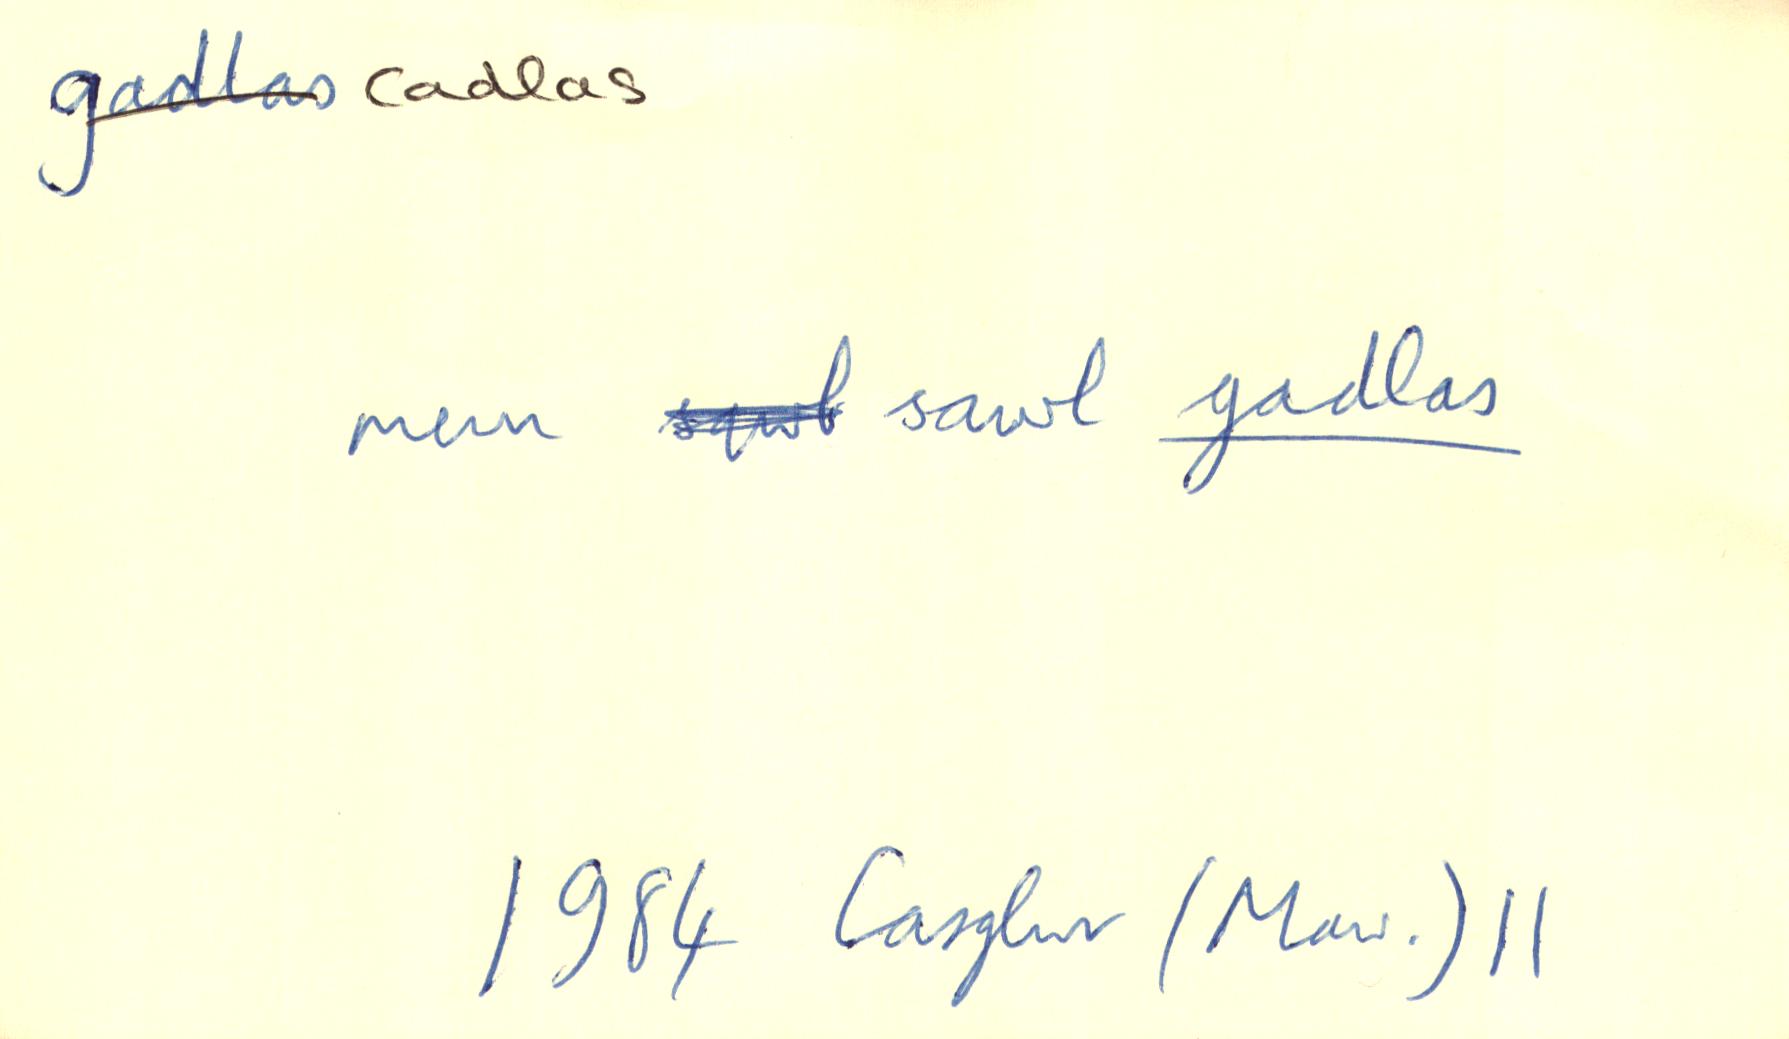 gadlas cadlas
mewn sawl gadlas
1984 Casglwr (Maw.) 11